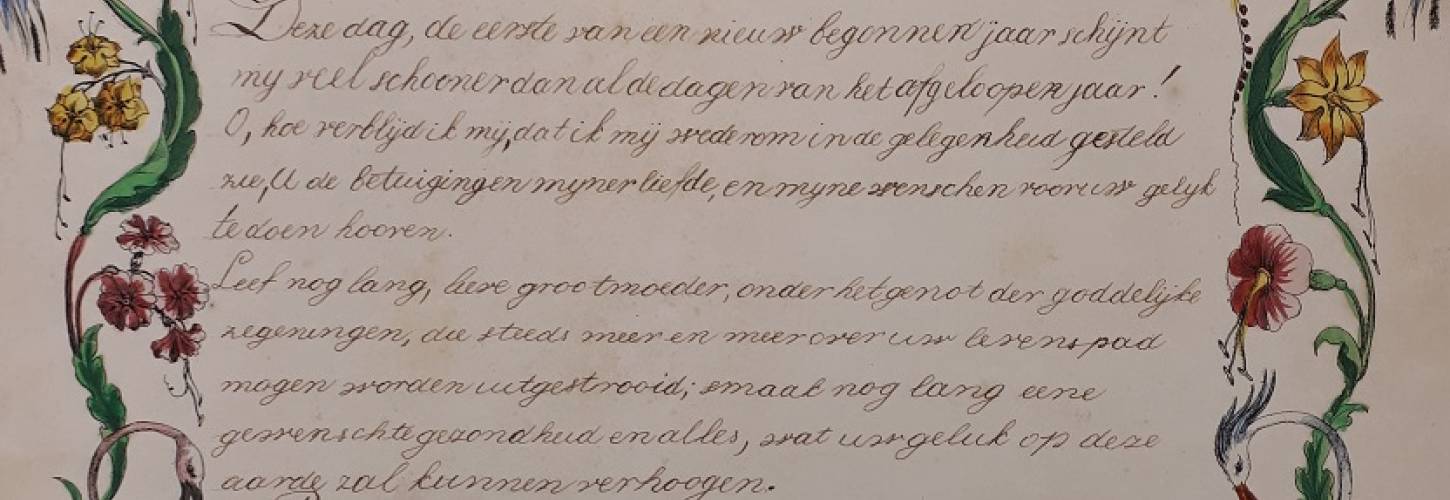 Deze dag, de eerste van een nieuw begonnen jaar schijnt
my veel schooner dan al de dagen van het afgeloopen jaar!
O, hoe verblijd ik mij, dat ik mij wederom in de gelegenheid gesteld
zie, U de betuigingen myner liefde, en myne wenschen voor uw gelyk
te doen hooren.
Leef nog lang, lieve grootmoeder, onder het genot der goddelijke
zegeningen, die steeds meer en meer over uw levenspad
mogen worden uitgestrooid; smaak nog lang eene
gewenschte gezondheid en alles, wat uw geluk op deze
aarde zal kunnen verhoogen.